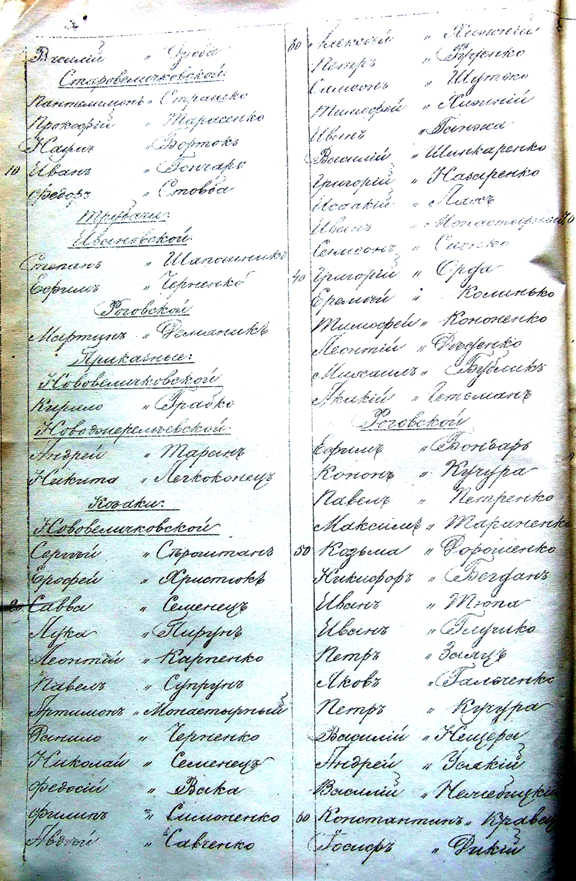 Василій " Дзюба
Старовеличковской:
Пантелимонъ " Страшко
Прокофій " Тарасенко
" Бортокъ
10 Иванъ " Гончаръ
Федоръ " Стовба
Трубачи:
Ивановской:
Степанъ " Шапошникъ
Ефимъ " Черненко
Роговской
Мартинъ " Демяникъ
Приказные:
Нововеличковской
Кирило " Грабко
Новоджерелѣевской:
Андрей " Таранъ
Никита " Легкоконецъ
Козаки:
Нововеличковской
Сергѣй " Сѣроштанъ
Ерофей " Христюкъ
20 Савва " Семенецъ
Лука " Пирунъ
Леонтій " Карпенко
Павелъ " Супрунъ
Артимонъ " Монастырный
Данило " Черненко
Николай " Семенецъ
Федосій " Вака
Филипъ " Симоненко
Авдѣй " Савченко
30 Алексѣй "
Петръ " Гуденко
Самсонъ " Шутько
Тимофей "
Иванъ " Ганжа
Василій " Шинкаренко
Григорій " Назаренко
Исаакій " Ляхъ
Иванъ " Монастырный
Самсонъ "
40 Григорій " Орда
Еремѣй " Колинько
Тимофей " Кононенко
Леонтій " Дяденко
Михаилъ " Бубликъ
Акакій " Гетманъ
Роговской
Ефимъ " Бондарь
Кононъ " Кучура
Павелъ " Петренко
Максимъ " Тараненко
50 Козьма " Дорошенко
Никифоръ " Богданъ
Иванъ " Тюпа
Иванъ " Глушко
Петръ " Заяцъ
Яковъ " Гальченко
Петръ " Кучура
Василій " Нещера
Андрей "
Василій "
60 Константинъ " Кравецъ
" Дикій